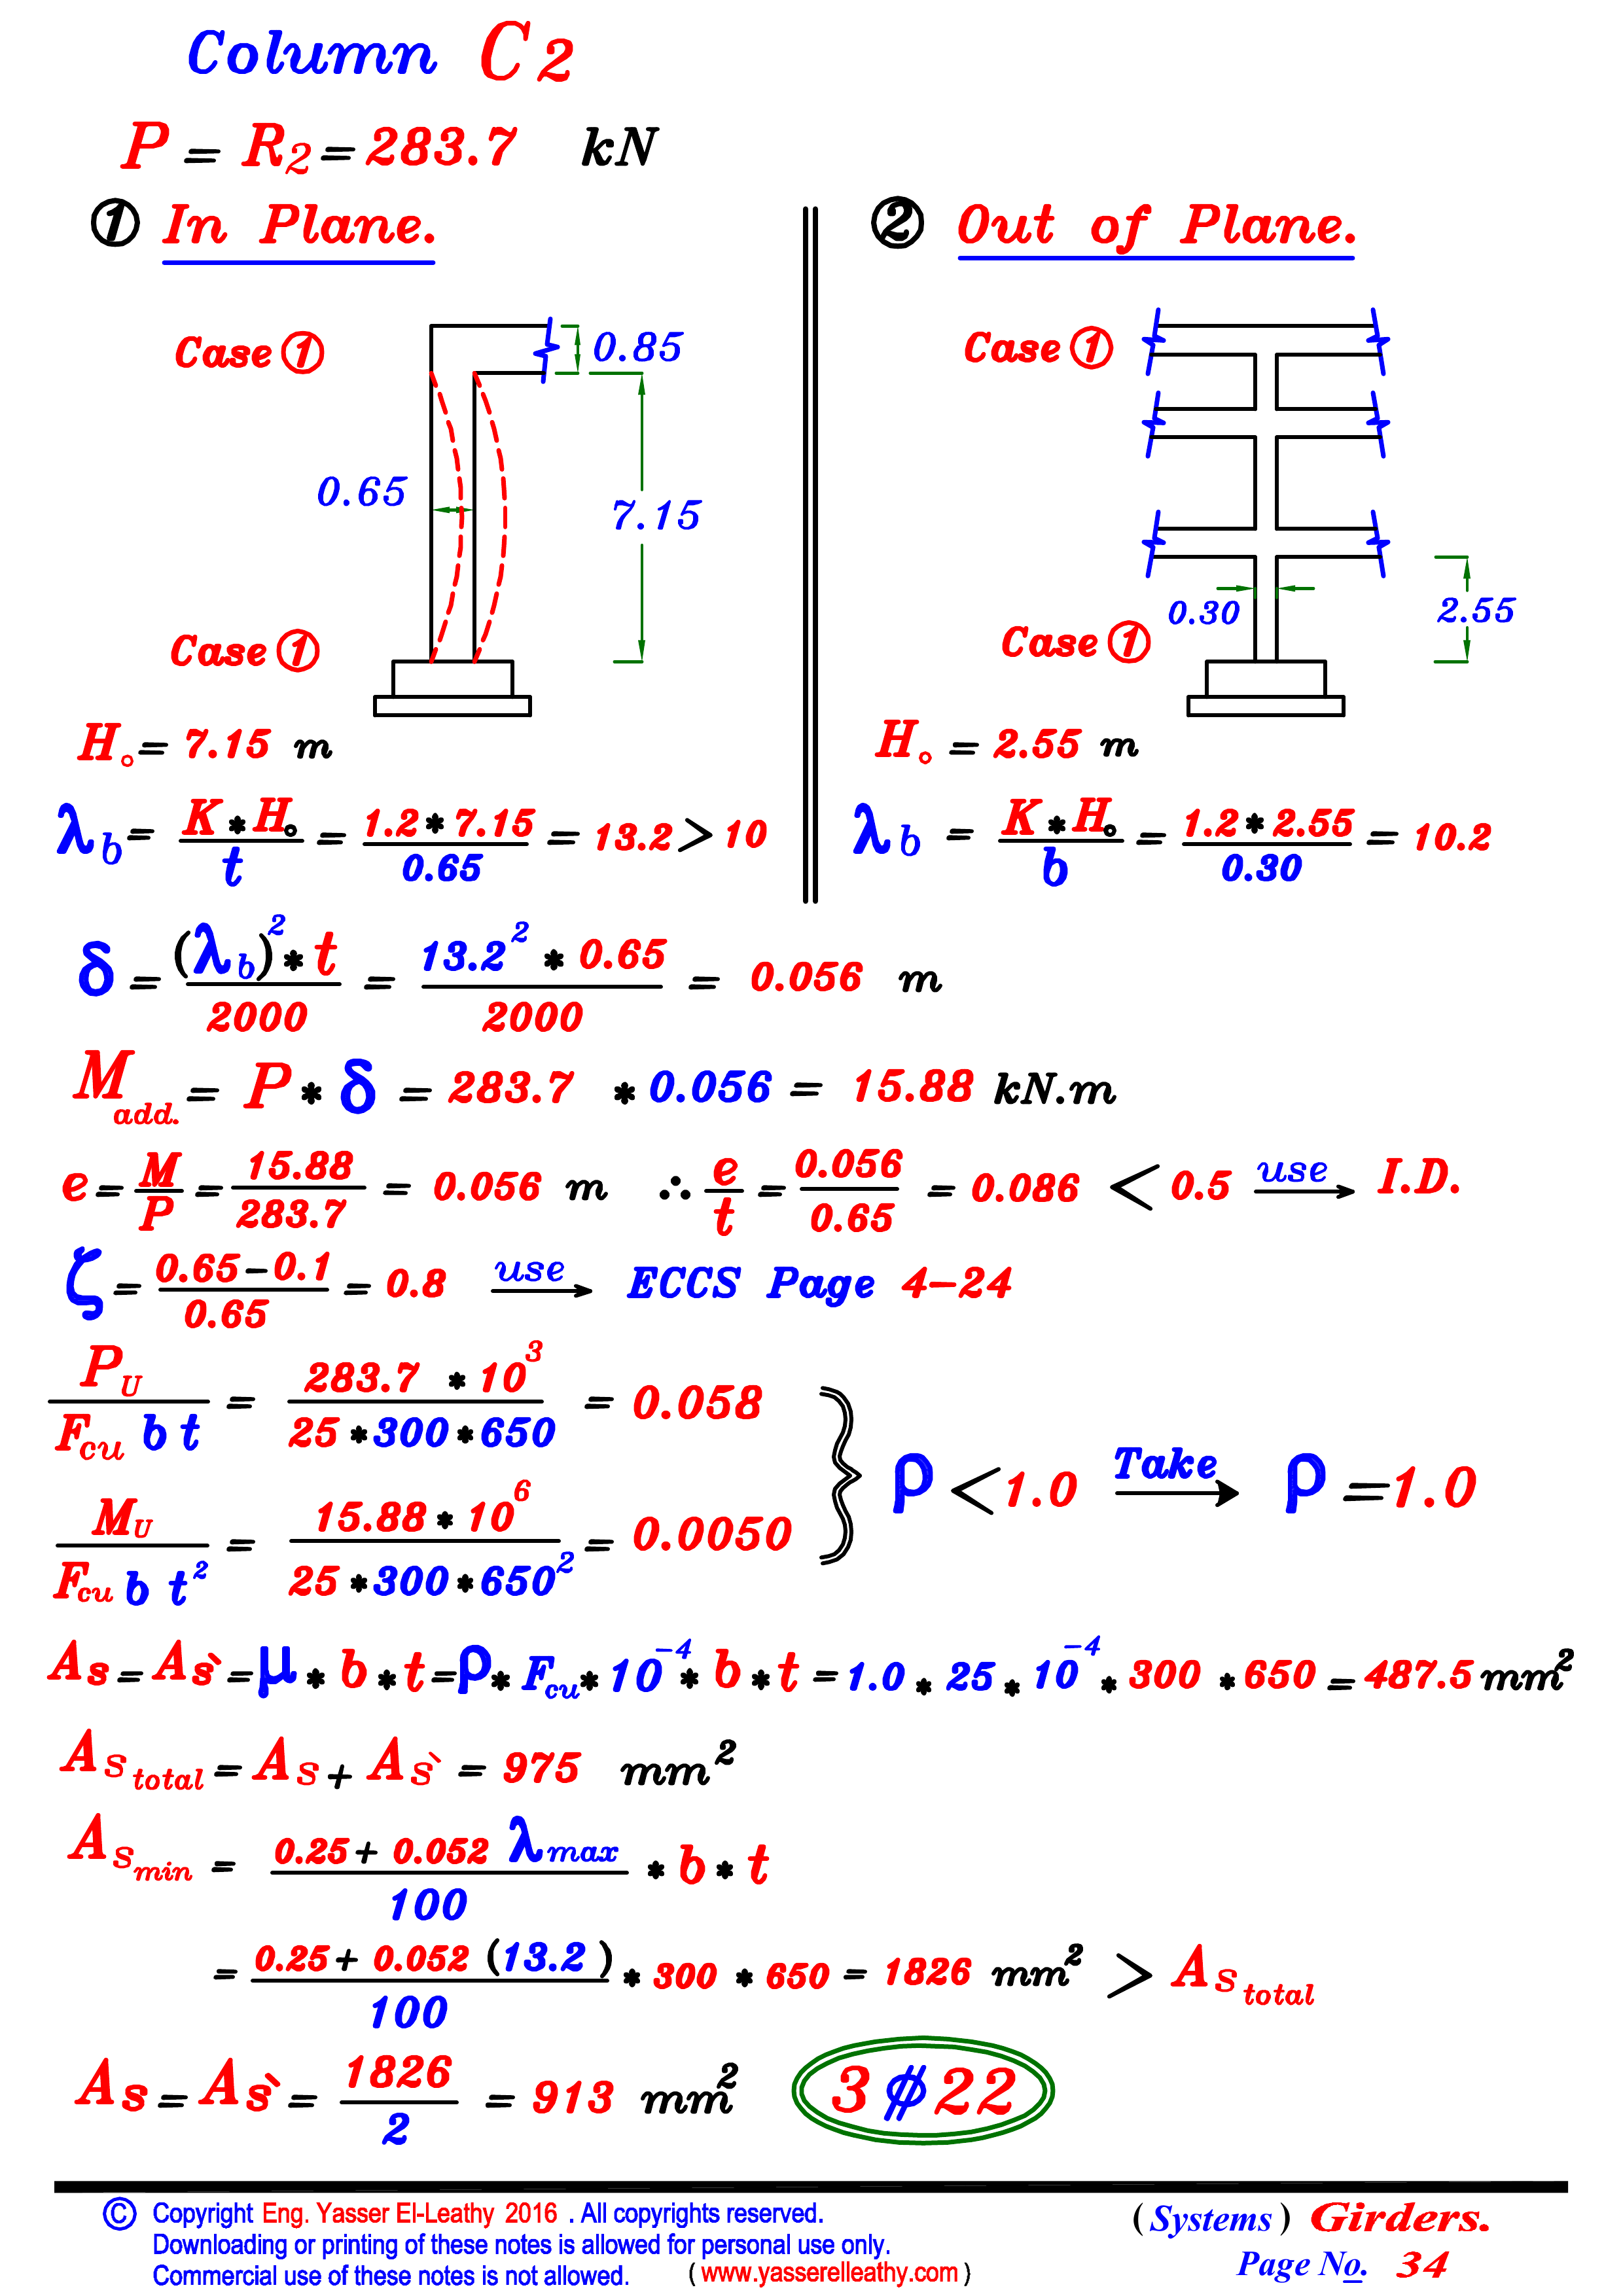 Column C2
P = R2 = 283.7 kN
① In Plane.
② Out of Plane.
Case ①
0.85
0.65
7.15
Case ①
Case ①
0.30
2.55
Case ①
H₀ = 7.15 m
H₀ = 2.55 m
λb = K * H₀ / t = 1.2 * 7.15 / 0.65 = 13.2 > 10
λb = K * H₀ / b = 1.2 * 2.55 / 0.30 = 10.2
δ = (λb)² * t / 2000 = 13.2² * 0.65 / 2000 = 0.056 m
Madd. = P * δ = 283.7 * 0.056 = 15.88 kN.m
e = M / P = 15.88 / 283.7 = 0.056 m ∴ e / t = 0.056 / 0.65 = 0.086 < 0.5 use → I.D.
ζ = 0.65 - 0.1 / 0.65 = 0.8 use → ECCS Page 4-24
PU / Fcu b t = 283.7 * 10³ / 25 * 300 * 650 = 0.058
MU / Fcu b t² = 15.88 * 10⁶ / 25 * 300 * 650² = 0.0050
ρ < 1.0 Take → ρ = 1.0
As = As` = μ * b * t = ρ * Fcu * 10⁻⁴ * b * t = 1.0 * 25 * 10⁻⁴ * 300 * 650 = 487.5 mm²
As total = As + As` = 975 mm²
As min = 0.25 + 0.052 λmax / 100 * b * t
= 0.25 + 0.052 (13.2) / 100 * 300 * 650 = 1826 mm² > As total
As = As` = 1826 / 2 = 913 mm² 3 ⌀ 22
© Copyright Eng. Yasser El-Leathy 2016 . All copyrights reserved.
Downloading or printing of these notes is allowed for personal use only.
Commercial use of these notes is not allowed. ( www.yasserelleathy.com )
(Systems) Girders.
Page No. 34